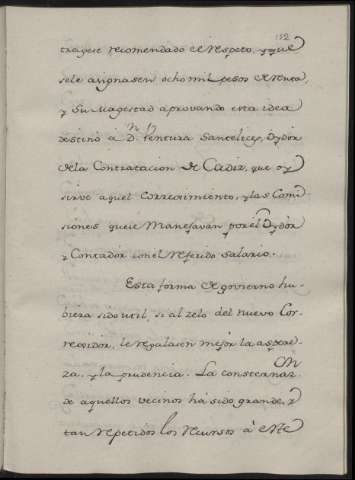 152
trajese recomendado el respeto, y que
sele asignasen ocho mil pesos de renta,
y Su Magestad aprovando esta idea
destinó à Dn Ventura Santelices, Oydor
de la Contratacion de Cadiz, que oy
sirve aquel Corregimiento, y las Comi
siones que se Manejavan por el Oydor
y Contador con el referido salario.
Esta forma de govierno hu
biera sido util, si al zelo del nuevo Cor
regidor, le reglasen mejor la aspere
za, y la prudencia. La consternaz.on
de aquellos vecinos há sido grande, y
tan repetidos los recursos à este